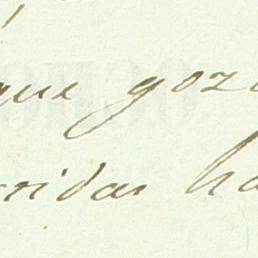 que goz
ridas ha